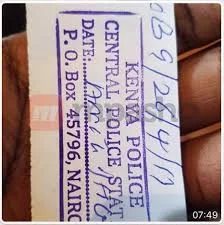 OB 9/284/17
KENYA POLICE
CENTRAL POLICE STAT
DATE:
P. O. Box 45796, NAIRO
07:49